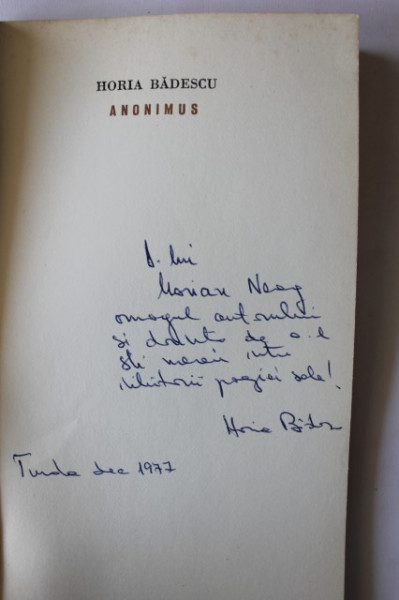 HORIA BĂDESCU
ANONIMUS
D. lui
Marian Neag
omagiul autorului
și dorința de a-l
ști mereu intru
iubitorii poeziei sale!
Horia Bădescu
Turda dec 1977